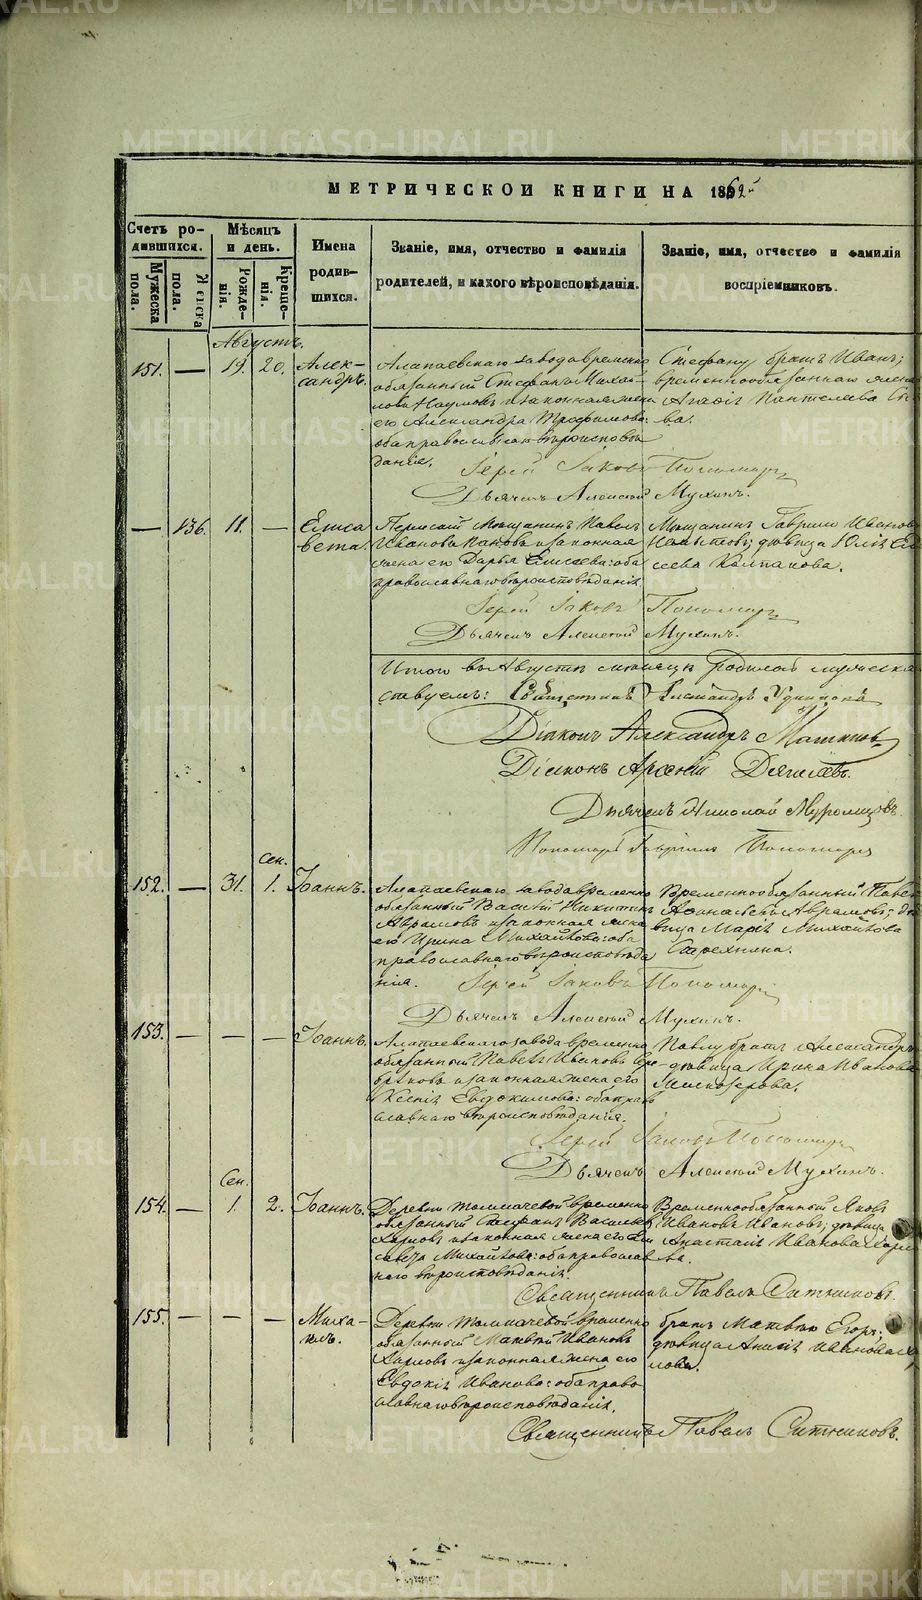 METRIKI.GASO-URAL.RU
МЕТРИЧЕСКОЙ КНИГИ НА 1862
Счетъ родившихся.
Мужеска пола.
Женска пола.
Мѣсяцъ и день.
Рожденія.
Крещенія.
Имена родившихся.
Званіе, имя, отчество и фамилія
родителей, и какого вѣроисповѣданія.
Званіе, имя, отчество и фамилія
воспріемниковъ.
Августъ.
151. — 19. 20. Александръ.
Алапаевскаго завода временно
обязанный Стефанъ Михай-
ловъ Наумовъ и законная жена
его Александра Трофимова:
оба православнаго вѣроисповѣ
данія.
Стефану братъ Иванъ;
временнообязаннаго жена
Пантелеева
ва.
Іерей Іаковъ Пономаревъ
Дьячекъ Алексѣй Мухинъ.
— 136. 11. — Елиса
вета.
Пермскій мѣщанинъ Павелъ
Ивановъ Пановъ и законная
жена его Дарья Елисеева: оба
православнаго вѣроисповѣданія.
Мѣщанинъ Гавріилъ Ивановъ
дѣвица Юлія Ели
сеева Колпакова.
Іерей Іаковъ Пономаревъ
Дьячекъ Алексѣй Мухинъ.
Итого въ Августѣ мѣсяцѣ родилось мужеска
ствуемъ: Священникъ Александръ Удинцевъ
Діаконъ Александръ
Діаконъ Арсеній Дягилевъ.
Дьячекъ Николай
Пономарь Гавріилъ Пономаревъ
152. — 31. Сен. 1. Іоаннъ.
Алапаевскаго завода временно
обязанный Василій Никитинъ
Аврамовъ и законная жена
его Ирина Михайлова: оба
православнаго вѣроисповѣда
нія.
Временнообязанный Павелъ
Афанасьевъ Аврамовъ; дѣ
вица Марія Михайлова
Іерей Іаковъ Пономаревъ
Дьячекъ Алексѣй Мухинъ.
153. — — — Іоаннъ.
Алапаевскаго завода временно
обязанный Павелъ Ивановъ
и законная жена его
Ксенія Евдокимова: оба право
славнаго вѣроисповѣданія.
Павлу братъ Александръ
дѣвица Ирина Иванова
Іерей Іаковъ Пономаревъ
Дьячекъ Алексѣй Мухинъ.
154. — Сен. 1. 2. Іоаннъ.
Деревни Толмачевой временно
обязанный Стефанъ Васильевъ
и законная жена его Ели
савета Михайлова: оба православ
наго вѣроисповѣданія.
Временнообязанный Яковъ
Ивановъ Ивановъ; дѣвица
Анастасія Иванова
ва.
Священникъ Павелъ Ситниковъ.
155. — — — Миха-
илъ.
Деревни Толмачевой временно
обязанной Матвѣй Ивановъ
и законная жена его
Евдокія Иванова: оба право
славнаго вѣроисповѣданія.
братъ Матвѣю Егоръ;
дѣвица Анисія Иванова
лова.
Священникъ Павелъ Ситниковъ.